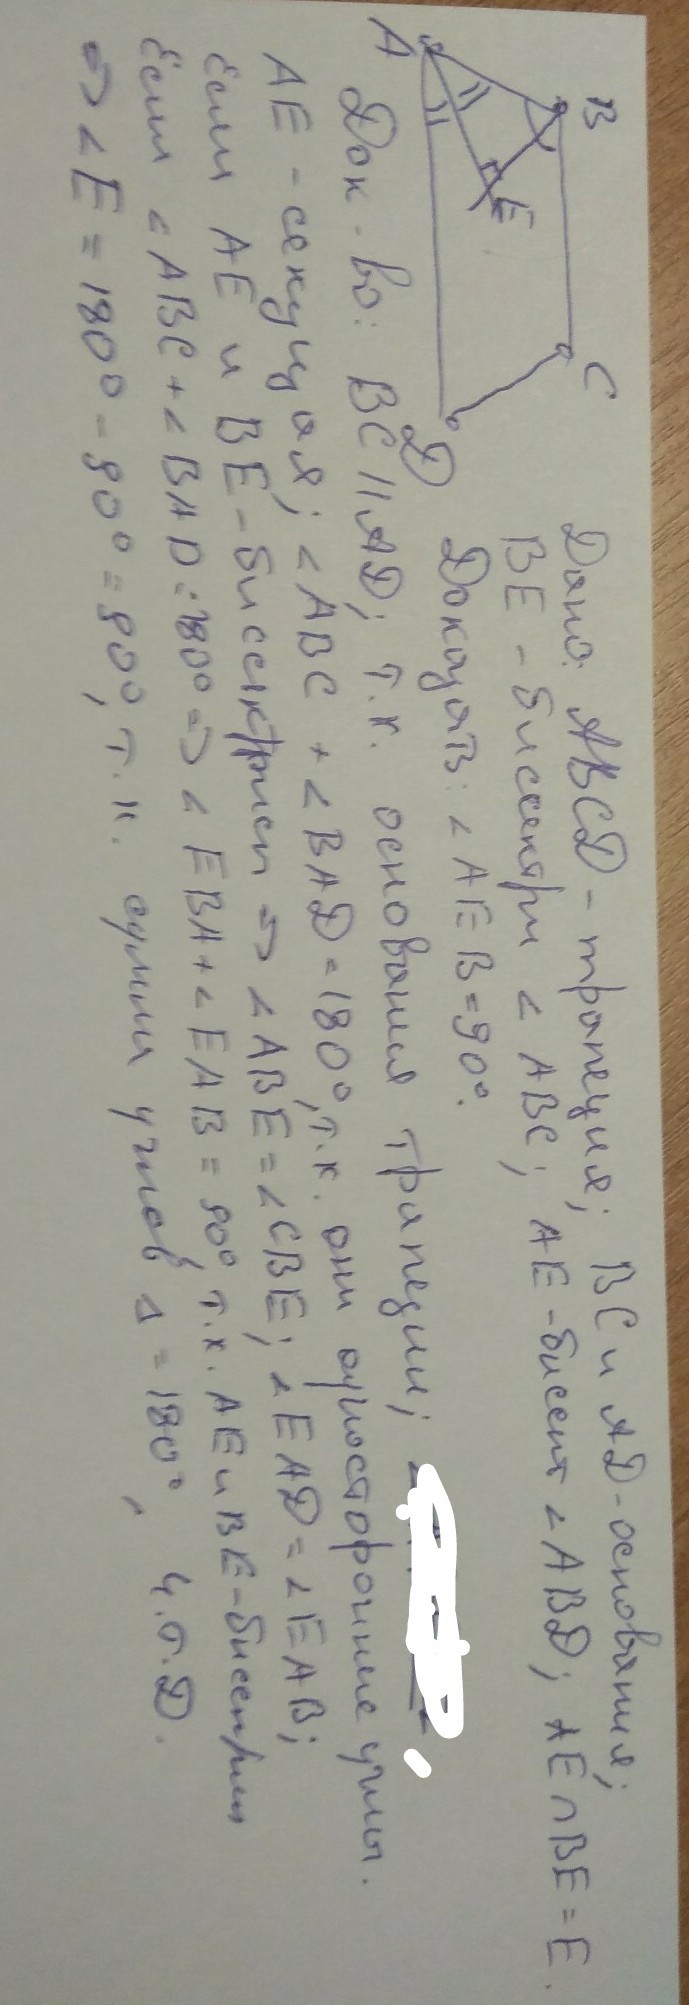 B
C
A
E
D
Дано: ABCD - трапеция; BC и AD - основания;
BE - биссектри ∠ABC; AE - бисект ∠ABD; AE ∩ BE = E.
Доказать: ∠AEB = 90°.
Док-во: BC || AD; т.к. основания трапеции;
AE - секущая; ∠ABC + ∠BAD = 180°, т.к. они односторонние углы.
Если AE и BE - биссектрисы => ∠ABE = ∠CBE; ∠EAD = ∠EAB;
Если ∠ABC + ∠BAD = 180° => ∠EBA + ∠EAB = 90°, т.к. AE и BE - бисектрисы
=> ∠E = 180° - 90° = 90°, т.к. сумма углов Δ = 180°, ч.т.д.